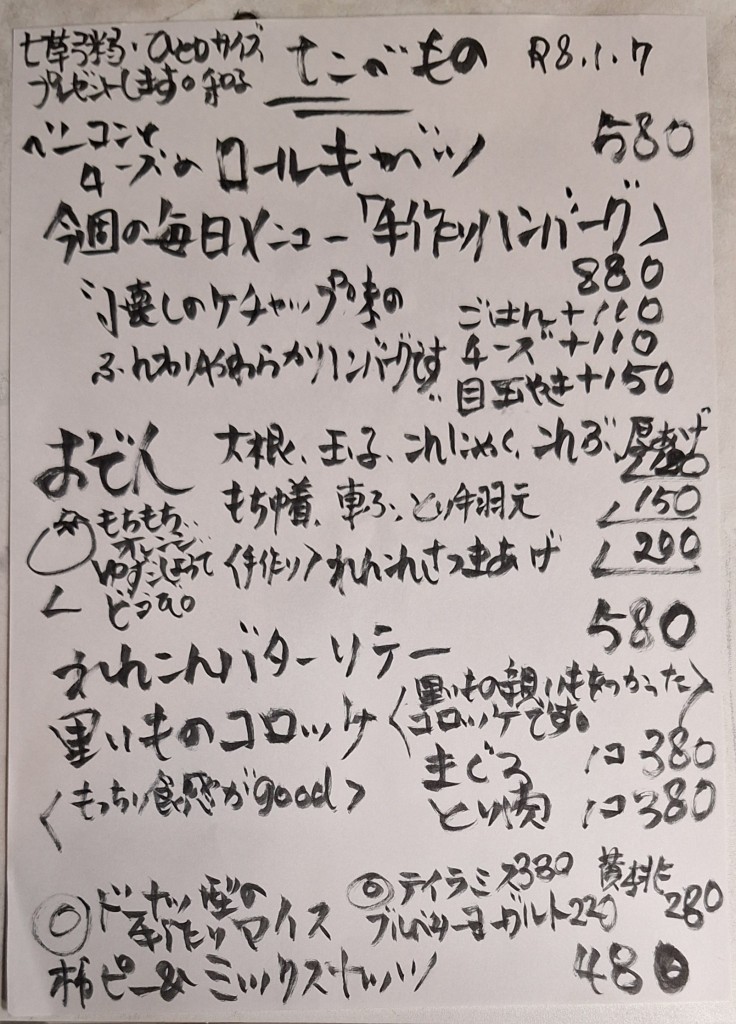 七草粥・ひと口サイズ
プレゼントします。
たべもの R8.1.7
ベーコンと
チーズの ロールキャベツ 580
今週の毎日メニュー「手作りハンバーグ」
880
昔懐しのケチャップ味の
ごはん+110
ふんわりやわらかハンバーグです
チーズ+110
目玉やき+150
おでん 大根、玉子、こんにゃく、こんぶ、厚あげ
もち巾着、車ふ、とり手羽元 150
もちもち
オレンジ
ゆずこしょうで
どうぞ。
〈手作り〉れんこんさつまあげ 200
れんこんバターソテー 580
里いものコロッケ
〈里いもの親いもをつかった
コロッケです。〉
〈もっちり食感がgood〉
まぐろ 1コ 380
とり肉 1コ 380
◎ドーナッツ型の
手作りアイス
◎ティラミス380
ブルーベリーヨーグルト220
黄桃
280
柿ピー&ミックスナッツ 480